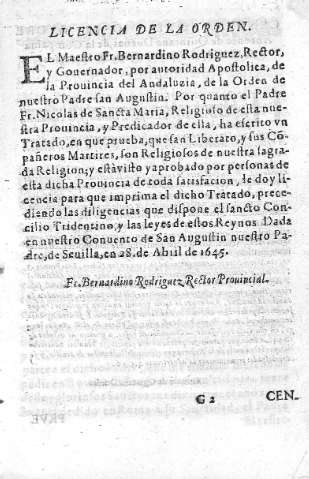 LICENCIA DE LA ORDEN.
EL Maestro Fr. Bernardino Rodriguez, Rector,
y Gouernador, por autoridad Apostolica, de
la Prouincia del Andaluzia, de la Orden de
nuestro Padre san Augustin. Por quanto el Padre
Fr. Nicolas de Sancta Maria, Religioso de esta nue-
stra Prouincia, y Predicador de ella, ha escrito vn
Tratado, en que prueba, que san Liberato, y sus Cõ-
pañeros Martires, son Religiosos de nuestra sagra-
da Religion; y està visto y aprobado por personas de
esta dicha Prouincia de toda satisfacion, le doy li-
cencia para que imprima el dicho Tratado, prece-
diendo las diligencias que dispone el sancto Con-
cilio Tridentino, y las leyes de estos Reynos. Dada
en nuestro Conuento de San Augustin nuestro Pa-
dre, de Seuilla, en 28. de Abril de 1645.
Fr. Bernardino Rodriguez Rector Prouincial.
G 2 CEN-